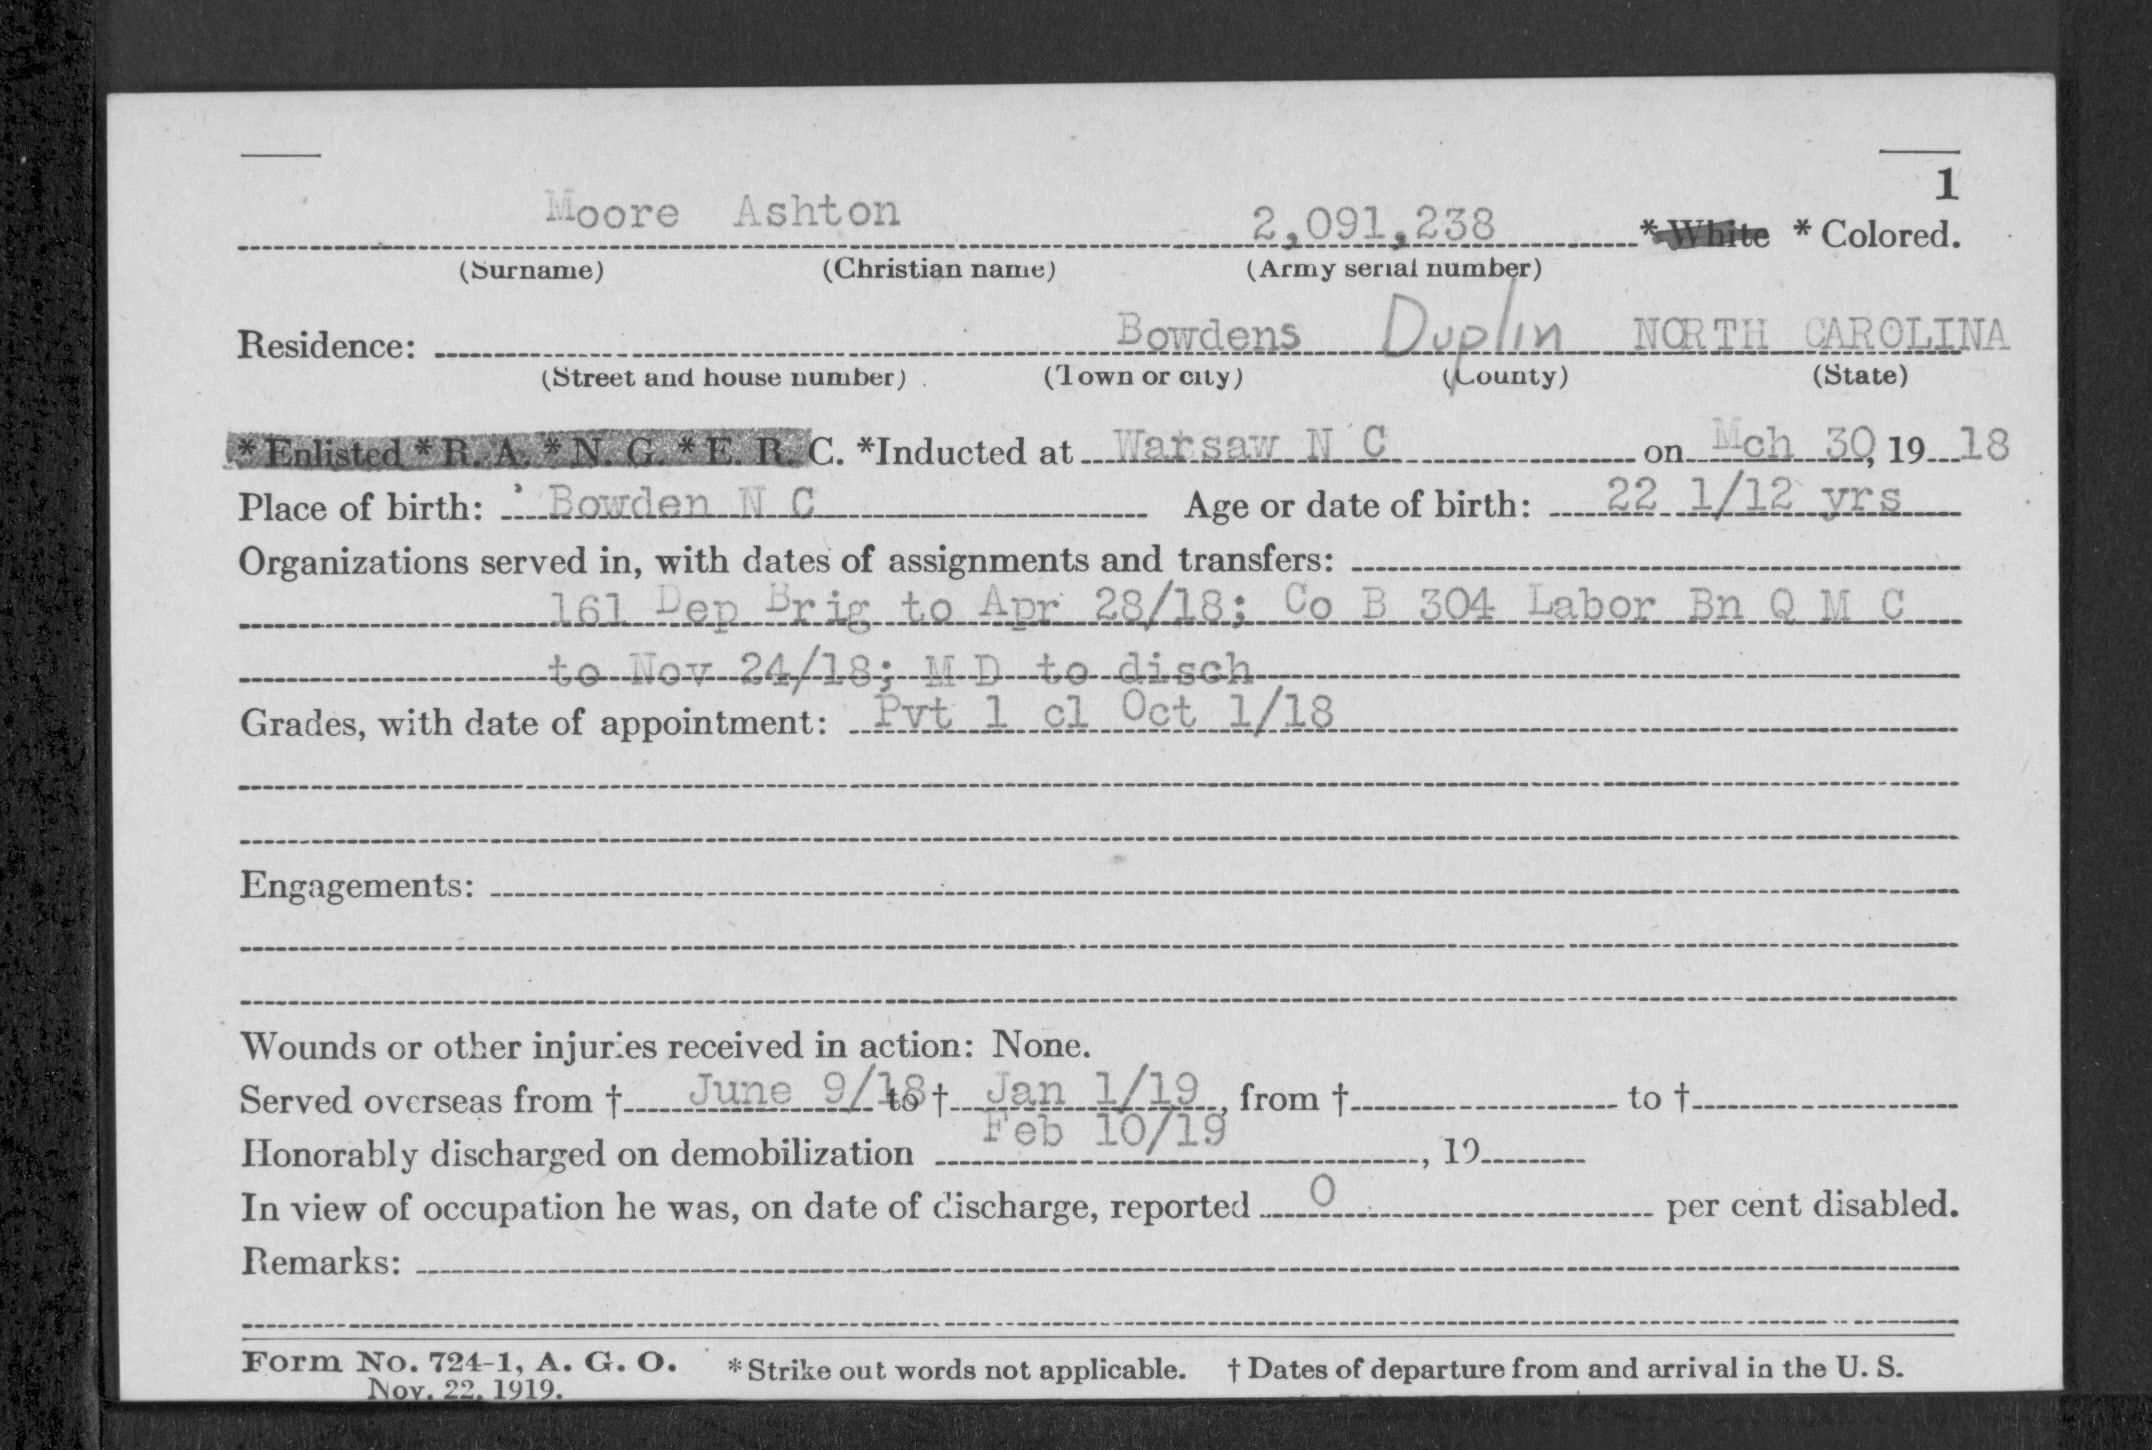 1
Moore Ashton 2,091,238 *White *Colored.
(Surname) (Christian name) (Army serial number)
Residence: Bowdens Duplin NORTH CAROLINA
(Street and house number) (Town or city) (County) (State)
*Enlisted *R. A. *N. G. *E. R. C. *Inducted at Warsaw N C on Mch 30, 19 18
Place of birth: Bowden N C Age or date of birth: 22 1/12 yrs
Organizations served in, with dates of assignments and transfers:
161 Dep Brig to Apr 28/18; Co B 304 Labor Bn Q M C
to Nov 24/18; M D to disch
Grades, with date of appointment: Pvt 1 cl Oct 1/18
Engagements:
Wounds or other injuries received in action: None.
Served overseas from † June 9/18 to † Jan 1/19, from † to †
Feb 10/19
Honorably discharged on demobilization , 19
In view of occupation he was, on date of discharge, reported 0 per cent disabled.
Remarks:
Form No. 724-1, A. G. O. *Strike out words not applicable. † Dates of departure from and arrival in the U. S.
Nov. 22, 1919.